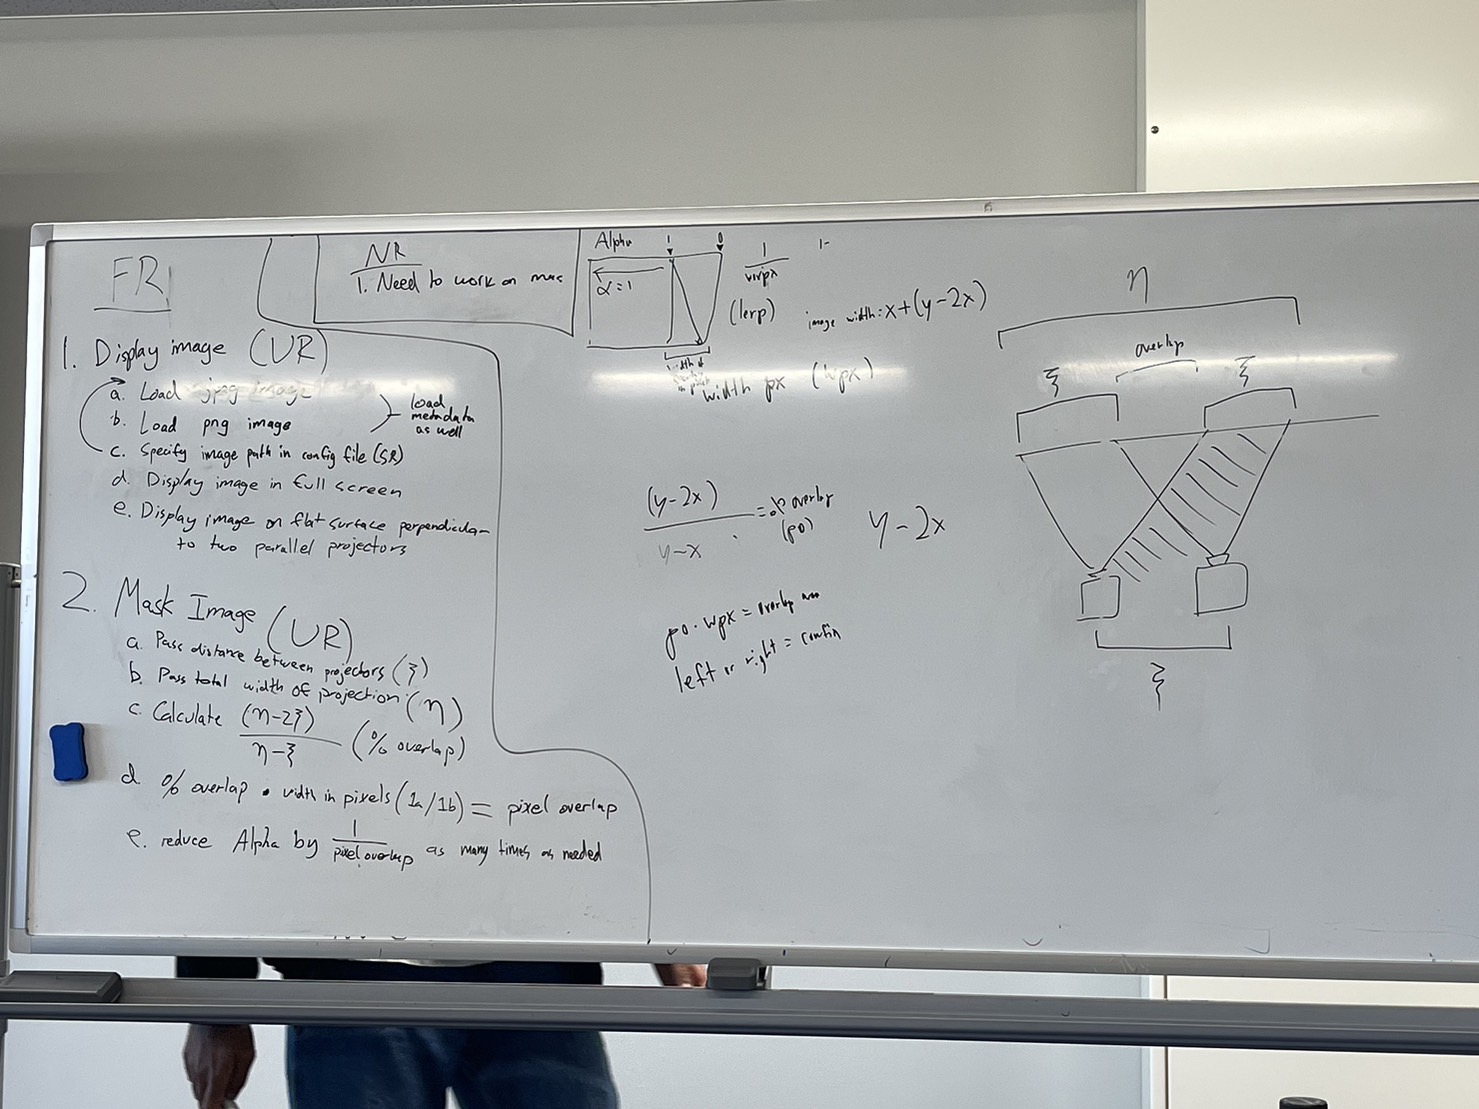 FR
1. Display image (UR)
a. Load jpeg image
b. Load png image
load metadata as well
c. Specify image path in config file (SR)
d. Display image in full screen
e. Display image on flat surface perpendicular
to two parallel projectors
2. Mask Image (UR)
a. Pass distance between projectors (ξ)
b. Pass total width of projection (η)
c. Calculate (η-2ξ) / η-ξ (% overlap)
d. % overlap • width in pixels (1a/1b) = pixel overlap
e. reduce Alpha by 1 / pixel overlap as many times as needed
NR
1. Need to work on mac
Alpha
1
0
α=1
width of
1
(lerp)
1-
image width: x+(y-2x)
width px (wpx)
(y-2x) / y-x = % overlap
(po)
y-2x
po • wpx = overlap
left or right = config
η
overlap
ξ
ξ
ξ